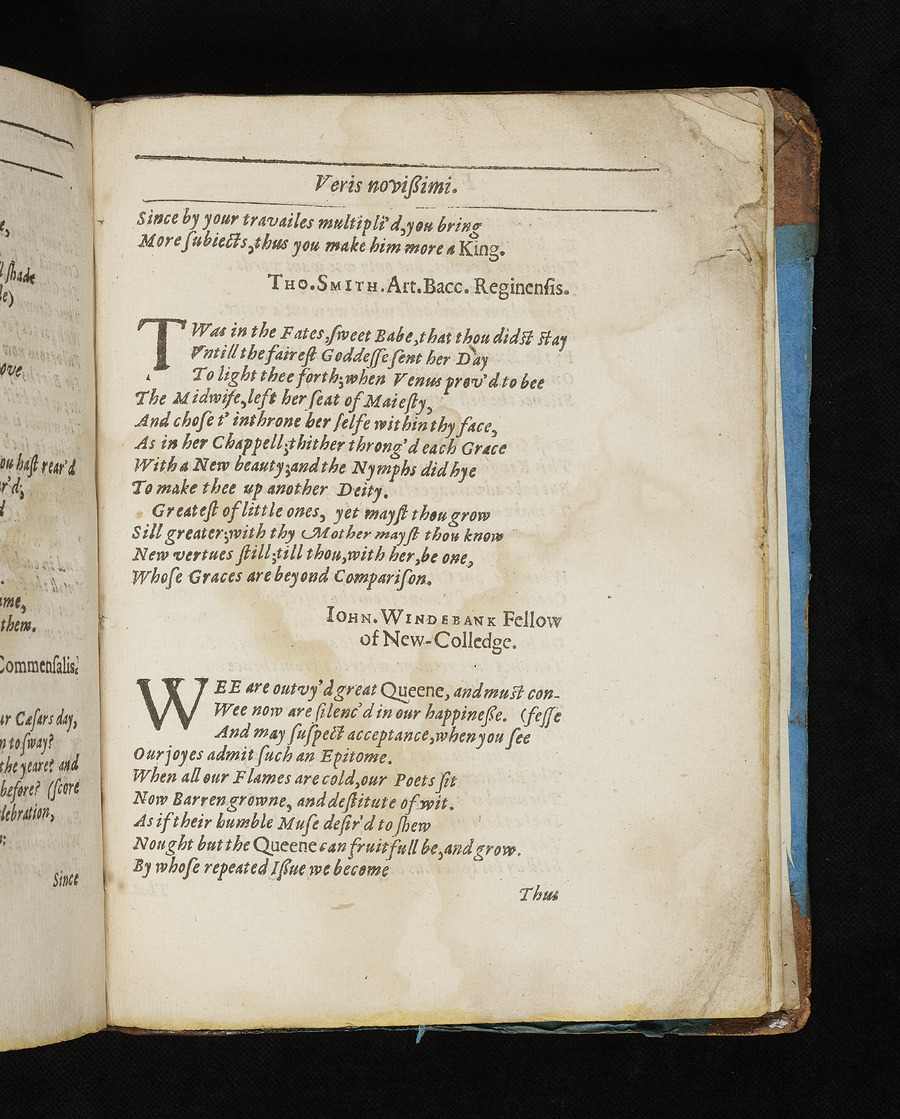 e,
l ſhade
le)
ove
ou haſt rear'd
r'd;
d
ime,
them.
Commenſalis.
ur Cæſars day,
n to ſway?
the yeare? and
before? (ſcore
lebration,
Since
Veris noviſsimi.
Since by your travailes multipli'd, you bring
More ſubiects, thus you make him more a King.
THO. SMITH. Art. Bacc. Reginenſis.
TWas in the Fates, ſweet Babe, that thou didſt ſtay
Vntill the faireſt Goddeſſe ſent her Day
To light thee forth; when Venus prov'd to bee
The Midwife, left her ſeat of Maieſty,
And choſe t' inthrone her ſelfe within thy face,
As in her Chappell; thither throng'd each Grace
With a New beauty; and the Nymphs did hye
To make thee up another Deity.
Greateſt of little ones, yet mayſt thou grow
Sill greater; with thy Mother mayſt thou know
New vertues ſtill; till thou, with her, be one,
Whoſe Graces are beyond Compariſon.
IOHN. WINDEBANK Fellow
of New-Colledge.
WEE are outvy'd great Queene, and muſt con-
Wee now are ſilenc'd in our happineſse. (feſſe
And may ſuſpect acceptance, when you ſee
Our joyes admit ſuch an Epitome.
When all our Flames are cold, our Poets ſit
Now Barren growne, and deſtitute of wit.
As if their humble Muſe deſir'd to ſhew
Nought but the Queene can fruitfull be, and grow.
By whoſe repeated Iſsue we become
Thus